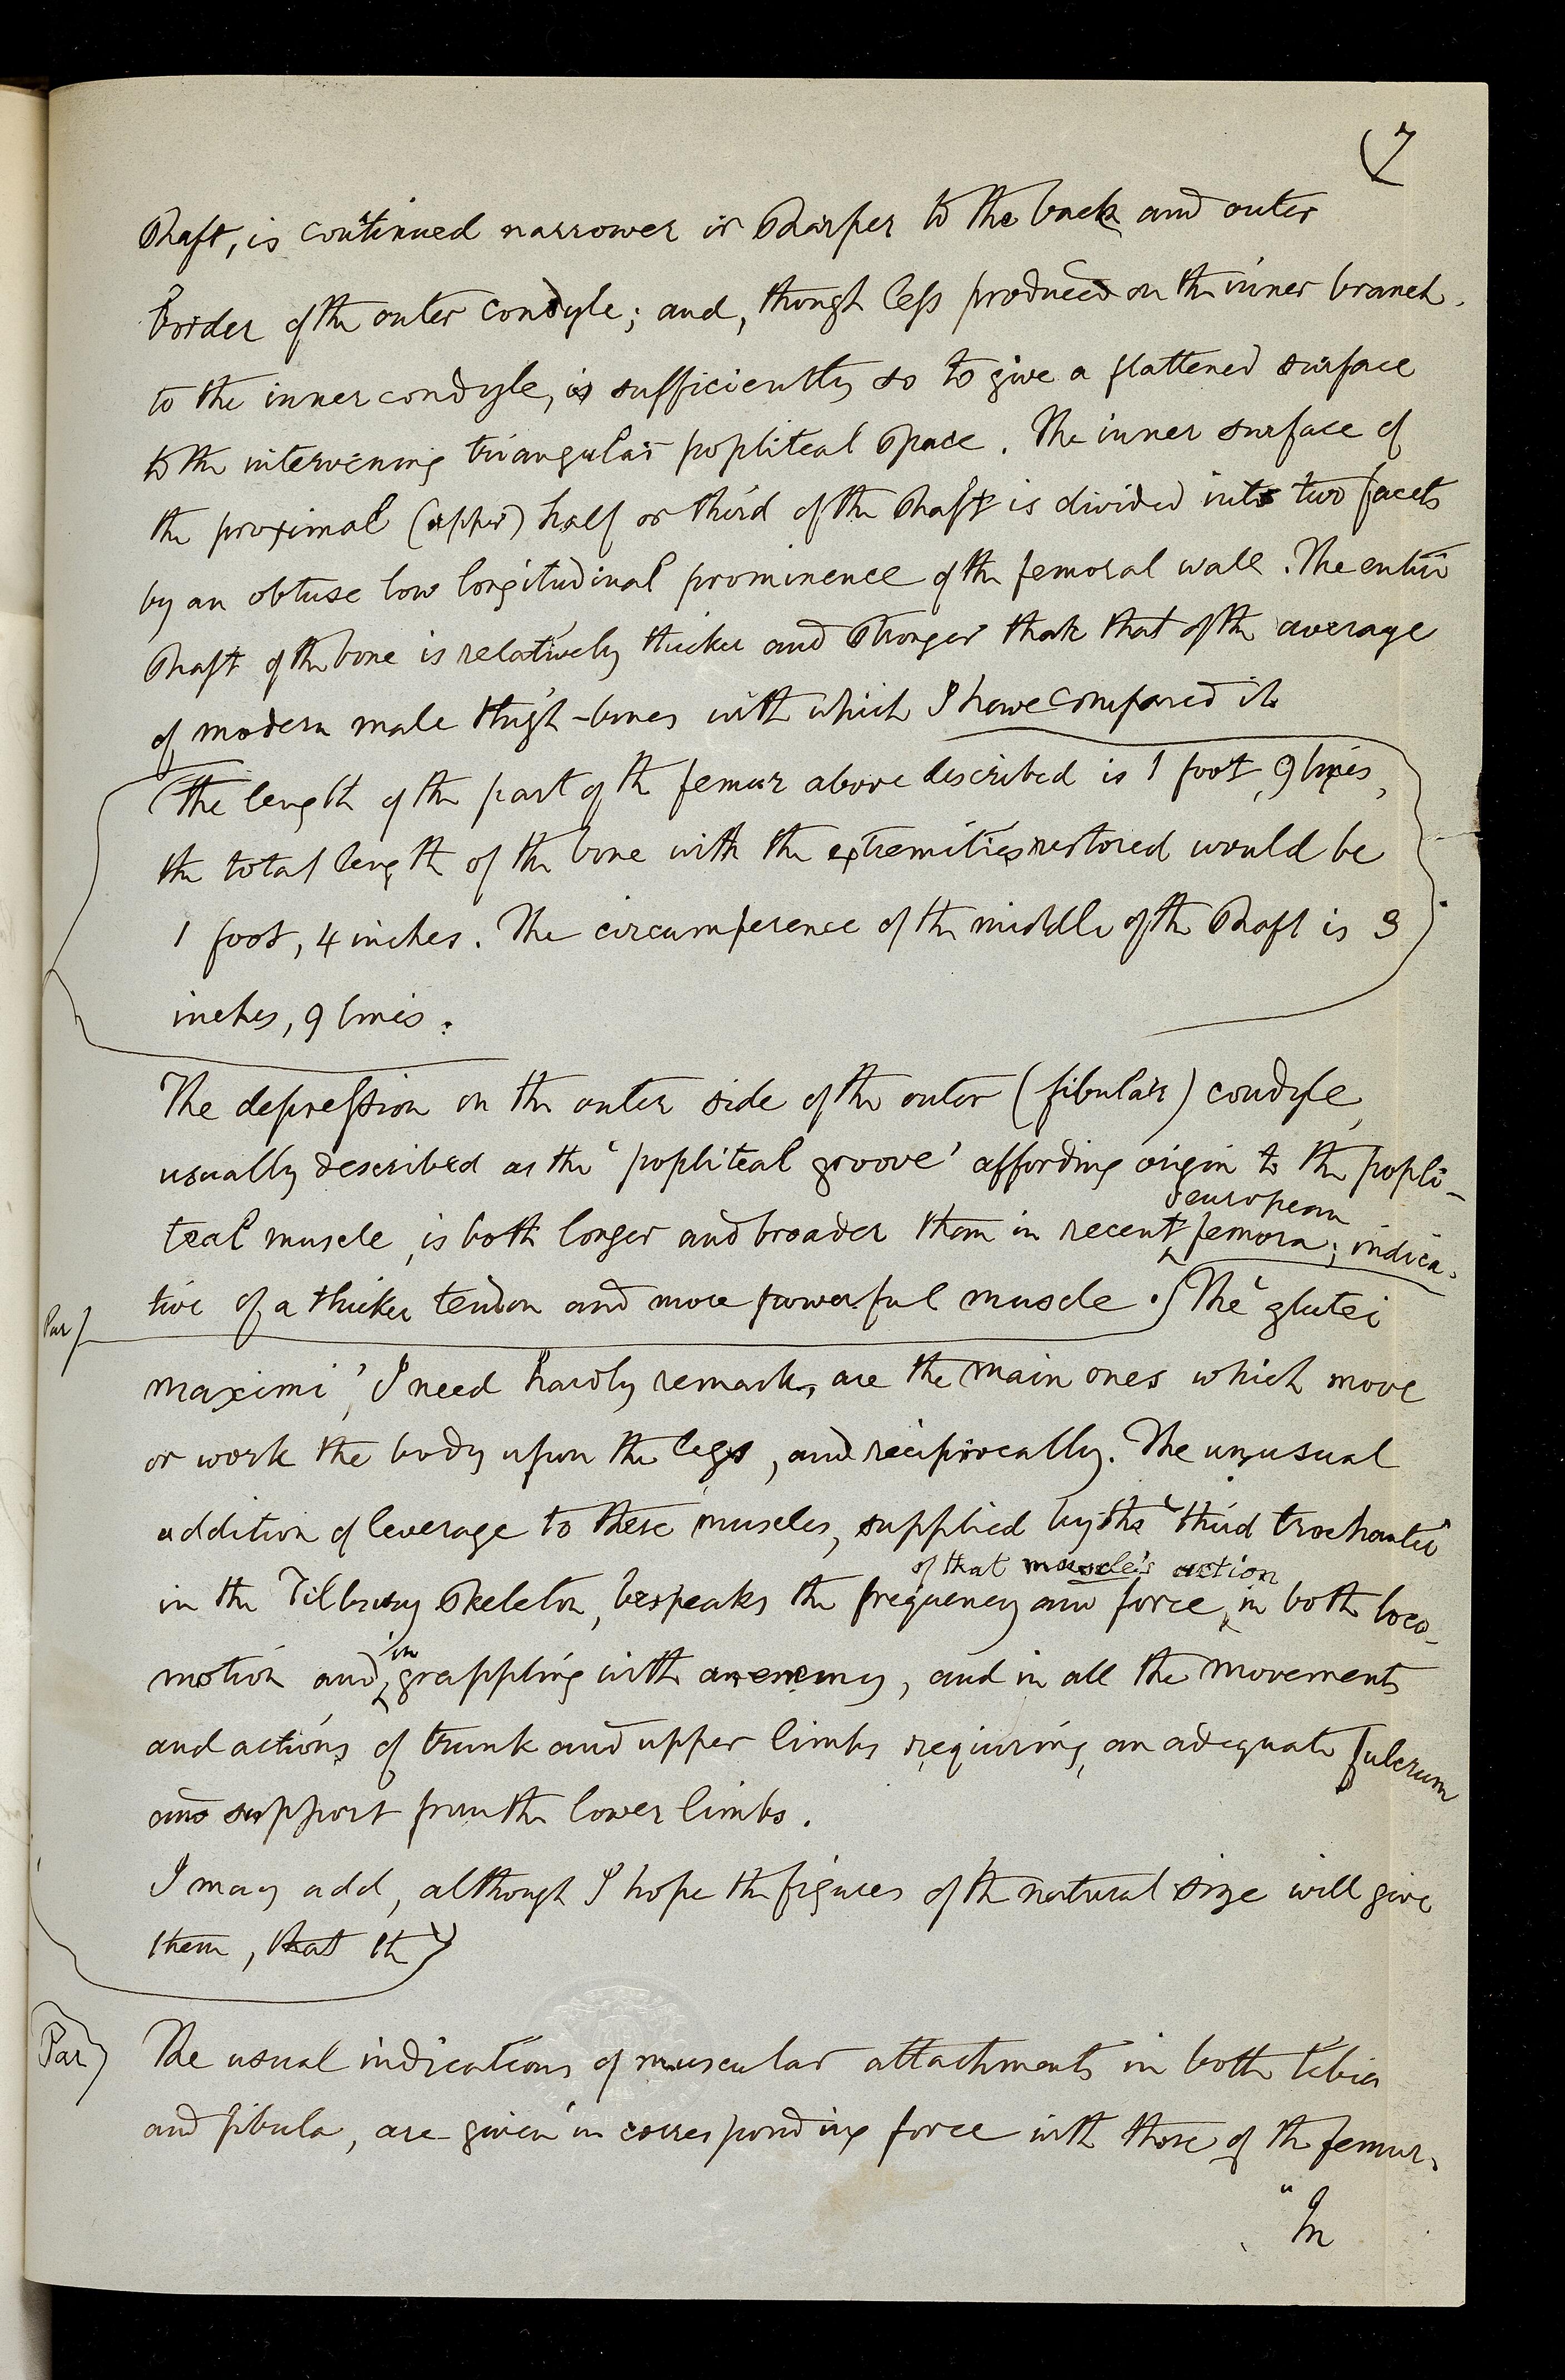 7
Shaft, is continued narrower or sharper to the back and outer
border of the outer condyle; and, though less produced on the inner branch
to the inner condyle, is sufficiently so to give a flattened surface
to the intervening triangular popliteal space. The inner surface of
the proximal (upper) half or third of the shaft is divided into two facets
by an obtuse low longitudinal prominence of the femoral wall. The entire
shaft of the bone is relatively thicker and stronger than that of the average
of modern male thigh-bones with which I have compared it.
The length of the part of the femur above described is 1 foot, 9 lines,
the total length of the bone with the extremities restored would be
1 foot, 4 inches. The circumference of the middle of the shaft is 3
inches, 9 lines.
The depression on the outer side of the outer (fibular) condyle,
usually described as the 'popliteal groove' affording origin to the popli-
european
teal muscle, is both longer and broader than in recent femora; indica-
Par
tive of a thicker tendon and more powerful muscle. The 'glutei
maximi', I need hardly remark, are the main ones which move
or work the body upon the legs, and reciprocally. The unusual
addition of leverage to these muscles, supplied by the 'third trochanter'
of that muscle's action
in the Tilbury Skeleton, bespeaks the frequency and force, in both loco-
in
motion and grappling with an enemy, and in all the movements
and actions of trunk and upper limbs requiring an adequate fulcrum
and support from the lower limbs.
I may add, although I hope the figures of the natural size will give
them, that the
Par
The usual indications of muscular attachments in both tibia
and fibula, are given in corresponding force with those of the femur.
"In